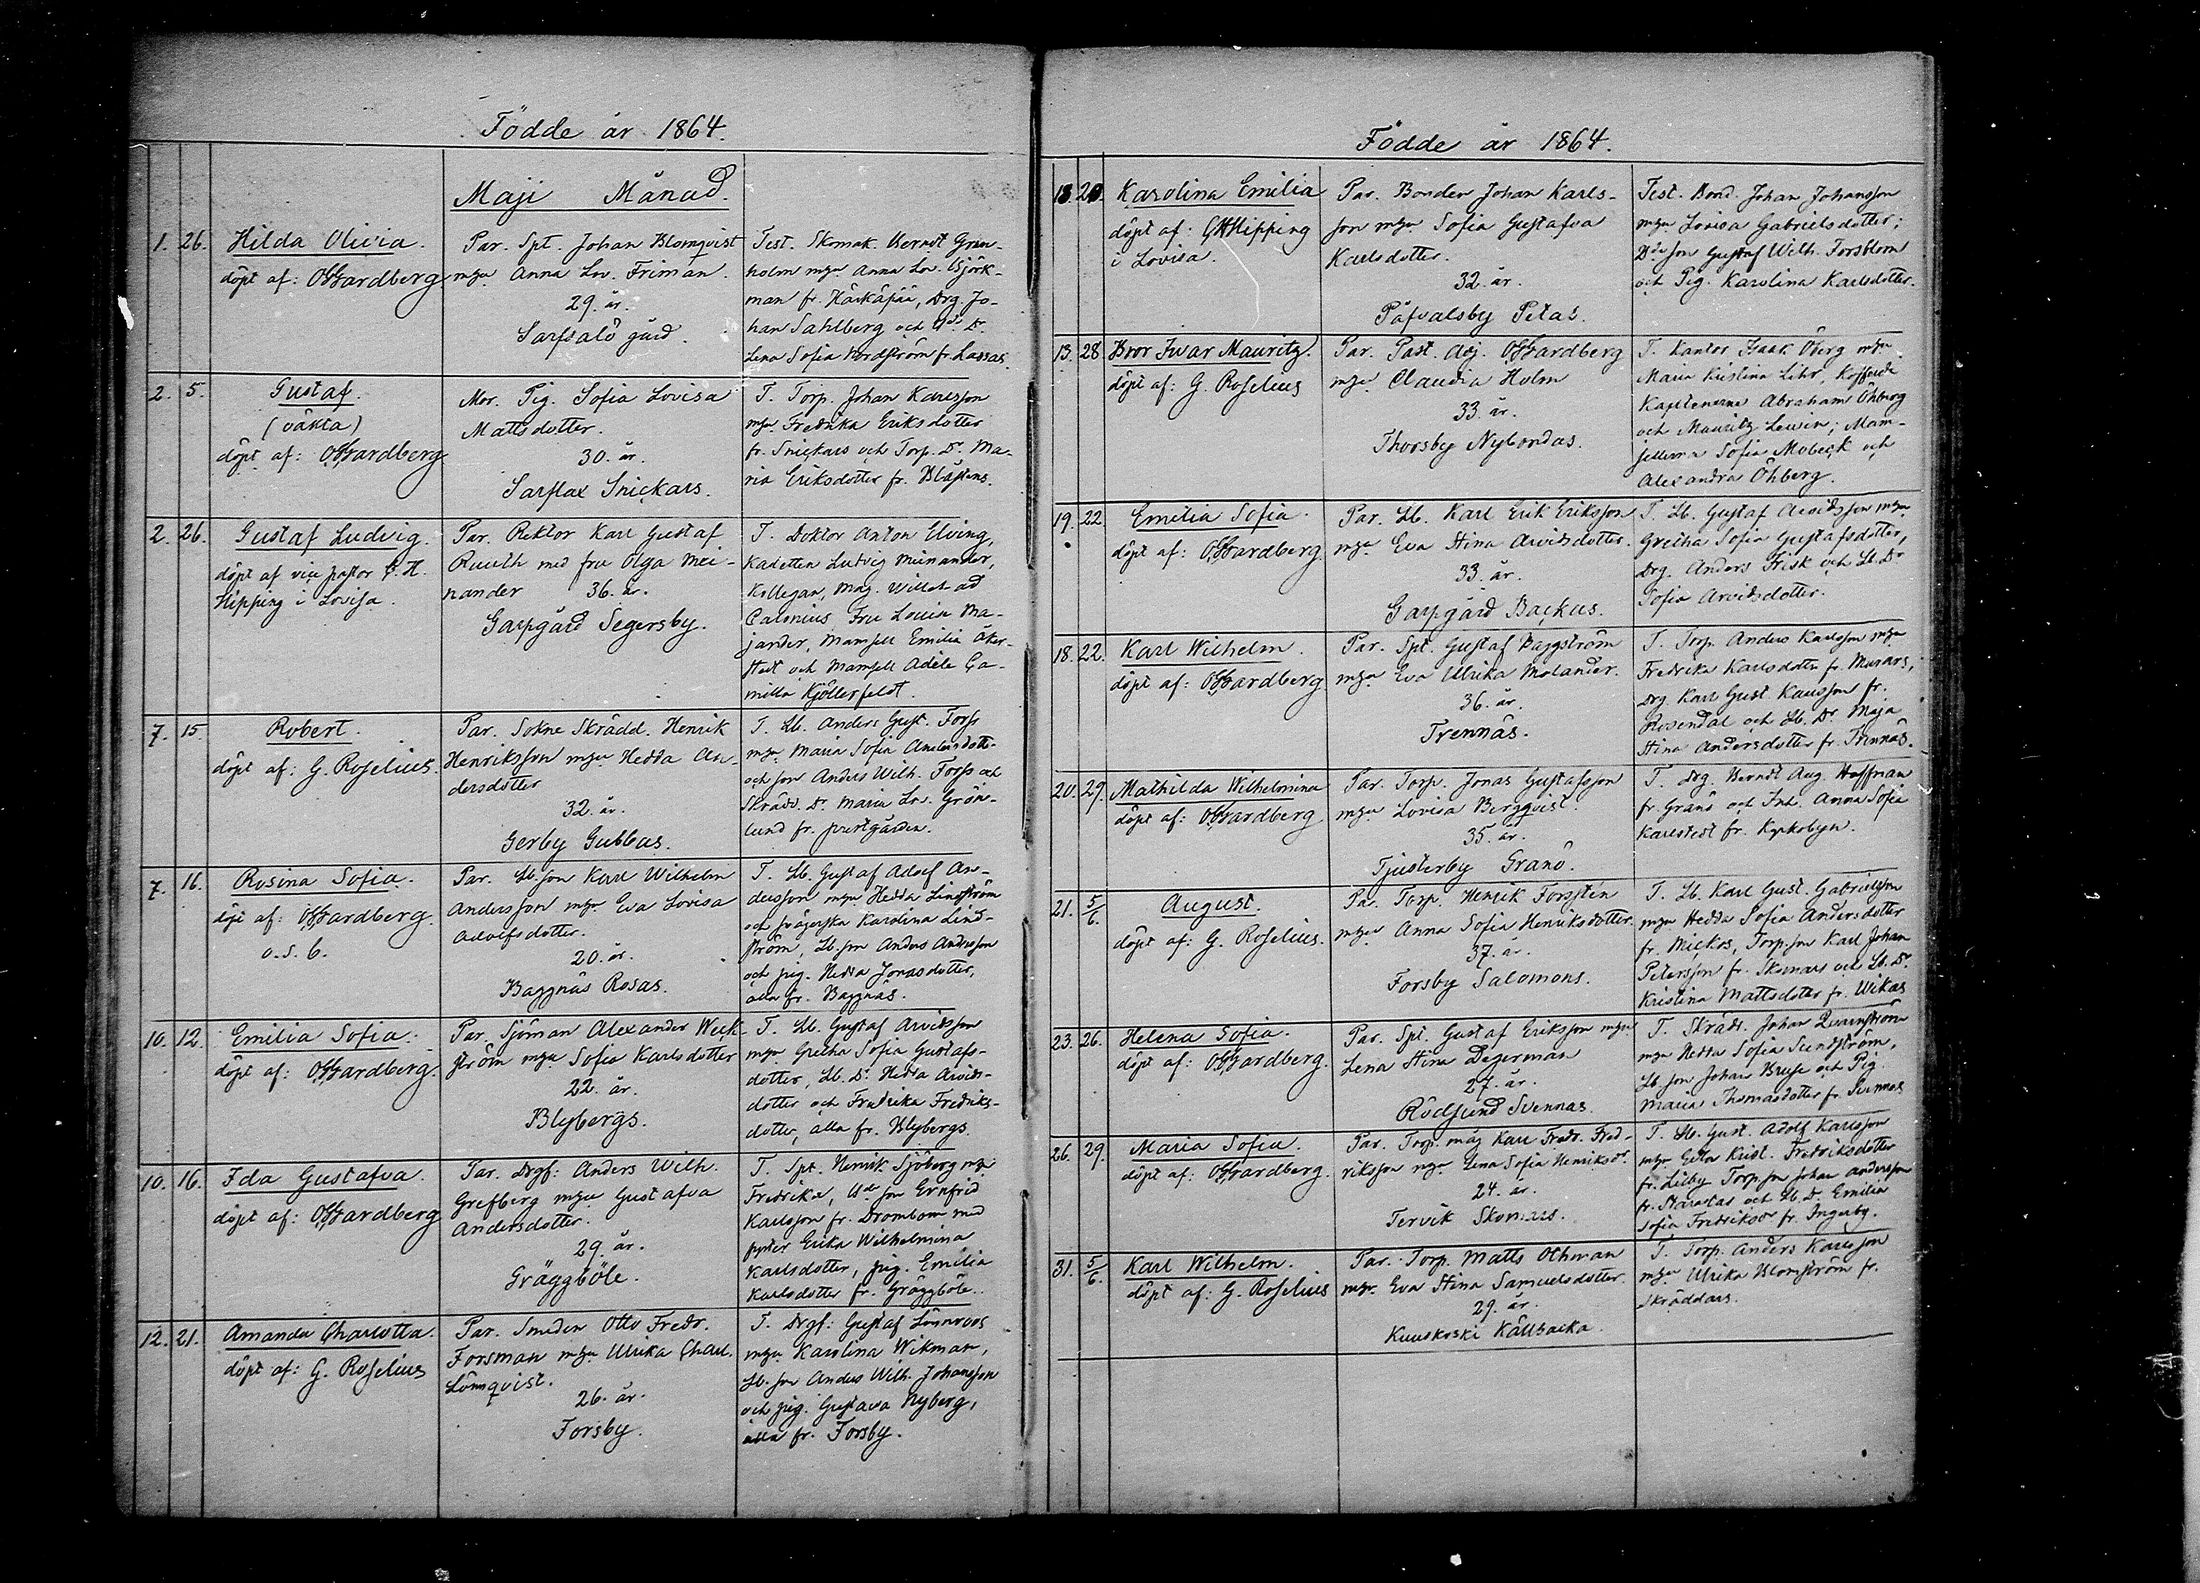 Födde år 1864.
Maji Månad.
1. 26. Hilda Olivia.
döpt af: OHardberg
Par. Spt. Johan Blomqvist
mga Anna Lov. Friman.
29. år.
Sarfsalö gård.
Test. Skomak. Berndt Gran-
holm mga Anna Lov. Björk-
man fr. Härkäpää, Drg. Jo-
han Sahlberg och Dr.
Lena Sofia Nordström fr. Lassas.
2. 5. Gustaf.
(oäkta)
döpt af: OHardberg
Mor. Pig. Sofia Lovisa
Mattsdotter.
30. år.
Sarflax Snickars.
T. Torp. Johan Karlsson
mga Fredrika Eriksdotter
fr. Snickars och Torp. Dr. Ma-
ria Eriksdotter fr. Kläfens.
2. 26. Gustaf Ludvig.
döpt af vice pastor G. H.
Hipping i Lovisa.
Par. Rektor Karl Gustaf
Ruuth med fru Olga Mei-
nander 36. år.
Garpgård Segersby.
T. Doktor Anton Elving,
Kadetten Ludvig Meinander,
Kollegan, Mag. Willehad
Calonius, Fru Lovisa Ma-
jander, Mamsell Emilia Åker-
stedt och Mamsell Adele Ca-
milla Kjöllerfeldt.
7. 15. Robert.
döpt af: G. Roselius.
Par. Sokne Skrädd. Henrik
Henriksson mga Hedda An-
dersdotter
32. år.
Gerby Gubbas.
T. Lb. Anders Gust. Forss
mga Maria Sofia Andersdott.
och son Anders Wilh. Forss och
Skrädd. Dr. Maria Lov. Grön-
lund fr. prestgården.
7. 16. Rosina Sofia.
döpt af: OHardberg.
o.s.b.
Par. Lb. son Karl Wilhelm
Andersson mga Eva Lovisa
Adolfsdotter.
20. år.
Baggnäs Rosas.
T. Lb. Gustaf Adolf An-
dersson mga Hedda Lindström
och svägerska Karolina Lind-
ström, Lb. son Anders Andersson
och pig. Hedda Jonasdotter,
alla fr. Baggnäs.
10. 12. Emilia Sofia.
döpt af: OHardberg.
Par. Sjöman Alexander Weck-
ström mga Sofia Karlsdotter
22. år.
Blybergs.
T. Lb. Gustaf Arvidsson
mga Gretha Sofia Gustafs-
dotter, Lb. Dr. Hedda Arvids-
dotter och Fredrika Fredriks-
dotter, alla fr. Blybergs.
10. 16. Ida Gustafva.
döpt af: OHardberg
Par. Drgf: Anders Wilh.
Grefberg mga Gustafva
Andersdotter.
29. år.
Gräggböle.
T. Spt. Henrik Sjöberg mga
Fredrika, Bde son Ernfrid
Karlsson fr. Drombom med
syster Erika Wilhelmina
Karlsdotter, pig. Emilia
Karlsdotter fr. Gräggböle.
12. 21. Amanda Charlotta.
döpt af: G. Roselius
Par. Smeden Otto Fredr.
Forsman mga Ulrika Charl.
Lönnqvist.
26. år.
Forsby.
T. Drgf: Gustaf Lönnroos
mga Karolina Wikman,
Lb. son Anders Wilh. Johansson
och pig. Gustava Nyberg,
alla fr. Forsby.
Födde år 1864.
13. 20. Karolina Emilia
döpt af: GHHipping
i Lovisa.
Par. Bonden Johan Karls-
son mga Sofia Gustafva
Karlsdotter.
32. år.
Påfvalsby Petas.
Test. Bond. Johan Johansson
mga Lovisa Gabrielsdotter;
Bde son Gustaf Wilh. Forsblom
och Pig. Karolina Karlsdotter.
13. 28 Bror Ivar Mauritz.
döpt af: G. Roselius
Par. Past. Adj. OHardberg
mga Claudia Holm
33. år.
Thorsby Nybondas.
T. Kantor Isaak Öberg mga
Maria Kristina Lihr, Koffardi
Kaptenerne Abraham Öhberg
och Mauritz Lewin; Mam-
sellerna Sofia Mobeck och
Alexandra Öhberg.
19. 22. Emilia Sofia.
döpt af: OHardberg.
Par. Lb. Karl Erik Eriksson
mga Eva Stina Arvidsdotter.
33. år.
Garpgård Backus.
T. Lb. Gustaf Arvidsson mga
Gretha Sofia Gustafsdotter,
Drg. Anders Frisk och Lb. Dr
Sofia Arvidsdotter.
18. 22. Karl Wilhelm.
döpt af: OHardberg
Par. Spt. Gustaf Baggström
mga Eva Ulrika Molander.
36. år.
Trennäs.
T. Torp. Anders Karlsson mga
Fredrika Karlsdotter fr. Murars,
Drg. Karl Gust. Karlsson fr.
Rosendal och Lb. Dr Maja
Stina Andersdotter fr. Trennäs.
20. 29. Mathilda Wilhelmina
döpt af: OHardberg
Par. Torp. Jonas Gustafsson
mga Lovisa Bergqvist.
35. år.
Tjusterby Granö.
T. Drg. Berndt Aug. Hoffman
fr. Granö och Inh. Anna Sofia
Karlstedt fr. Kyrkobyn.
21. 5/6. August.
döpt af: G. Roselius.
Par. Torp. Henrik Forsstén
mga Anna Sofia Henriksdotter.
37. år.
Forsby Salomons.
T. Lb. Karl Gust. Gabrielsson
mga Hedda Sofia Andersdotter
fr. Mickos, Torp. son Karl Johan
Petersson fr. Skomars och Lb. Dr
Kristina Mattsdotter fr. Wikas
23. 26. Helena Sofia.
döpt af: OHardberg.
Par. Spt. Gustaf Eriksson mga
Lena Stina Degerman
27. år.
Rödsund Svennas.
T. Skrädd. Johan Qvarnström
mga Hedda Sofia Sundström,
Lb. son Johan Bruse och Pig.
Maria Thomasdotter fr. Svennas
26. 29. Maria Sofia.
döpt af: OHardberg.
Par. Torp. måg Karl Fredr. Fred-
riksson mga Lena Sofia Henriksdr.
24. år.
Tervik Skomars.
T. Lb. Gust. Adolf Karlsson
mga Greta Krist. Fredriksdotter
fr. Lillby Torp. son Johan Andersson
fr. Starastas och Lb. Dr. Emilia
Sofia Fredriksdr fr. Ingerby.
31. 5/6. Karl Wilhelm.
döpt af: G. Roselius
Par. Torp. Matts Othman
mga Eva Stina Samuelsdotter.
29. år.
Kuuskoski Källbacka.
T. Torp. Anders Karlsson
mga Ulrika Blomström fr.
Skräddars.